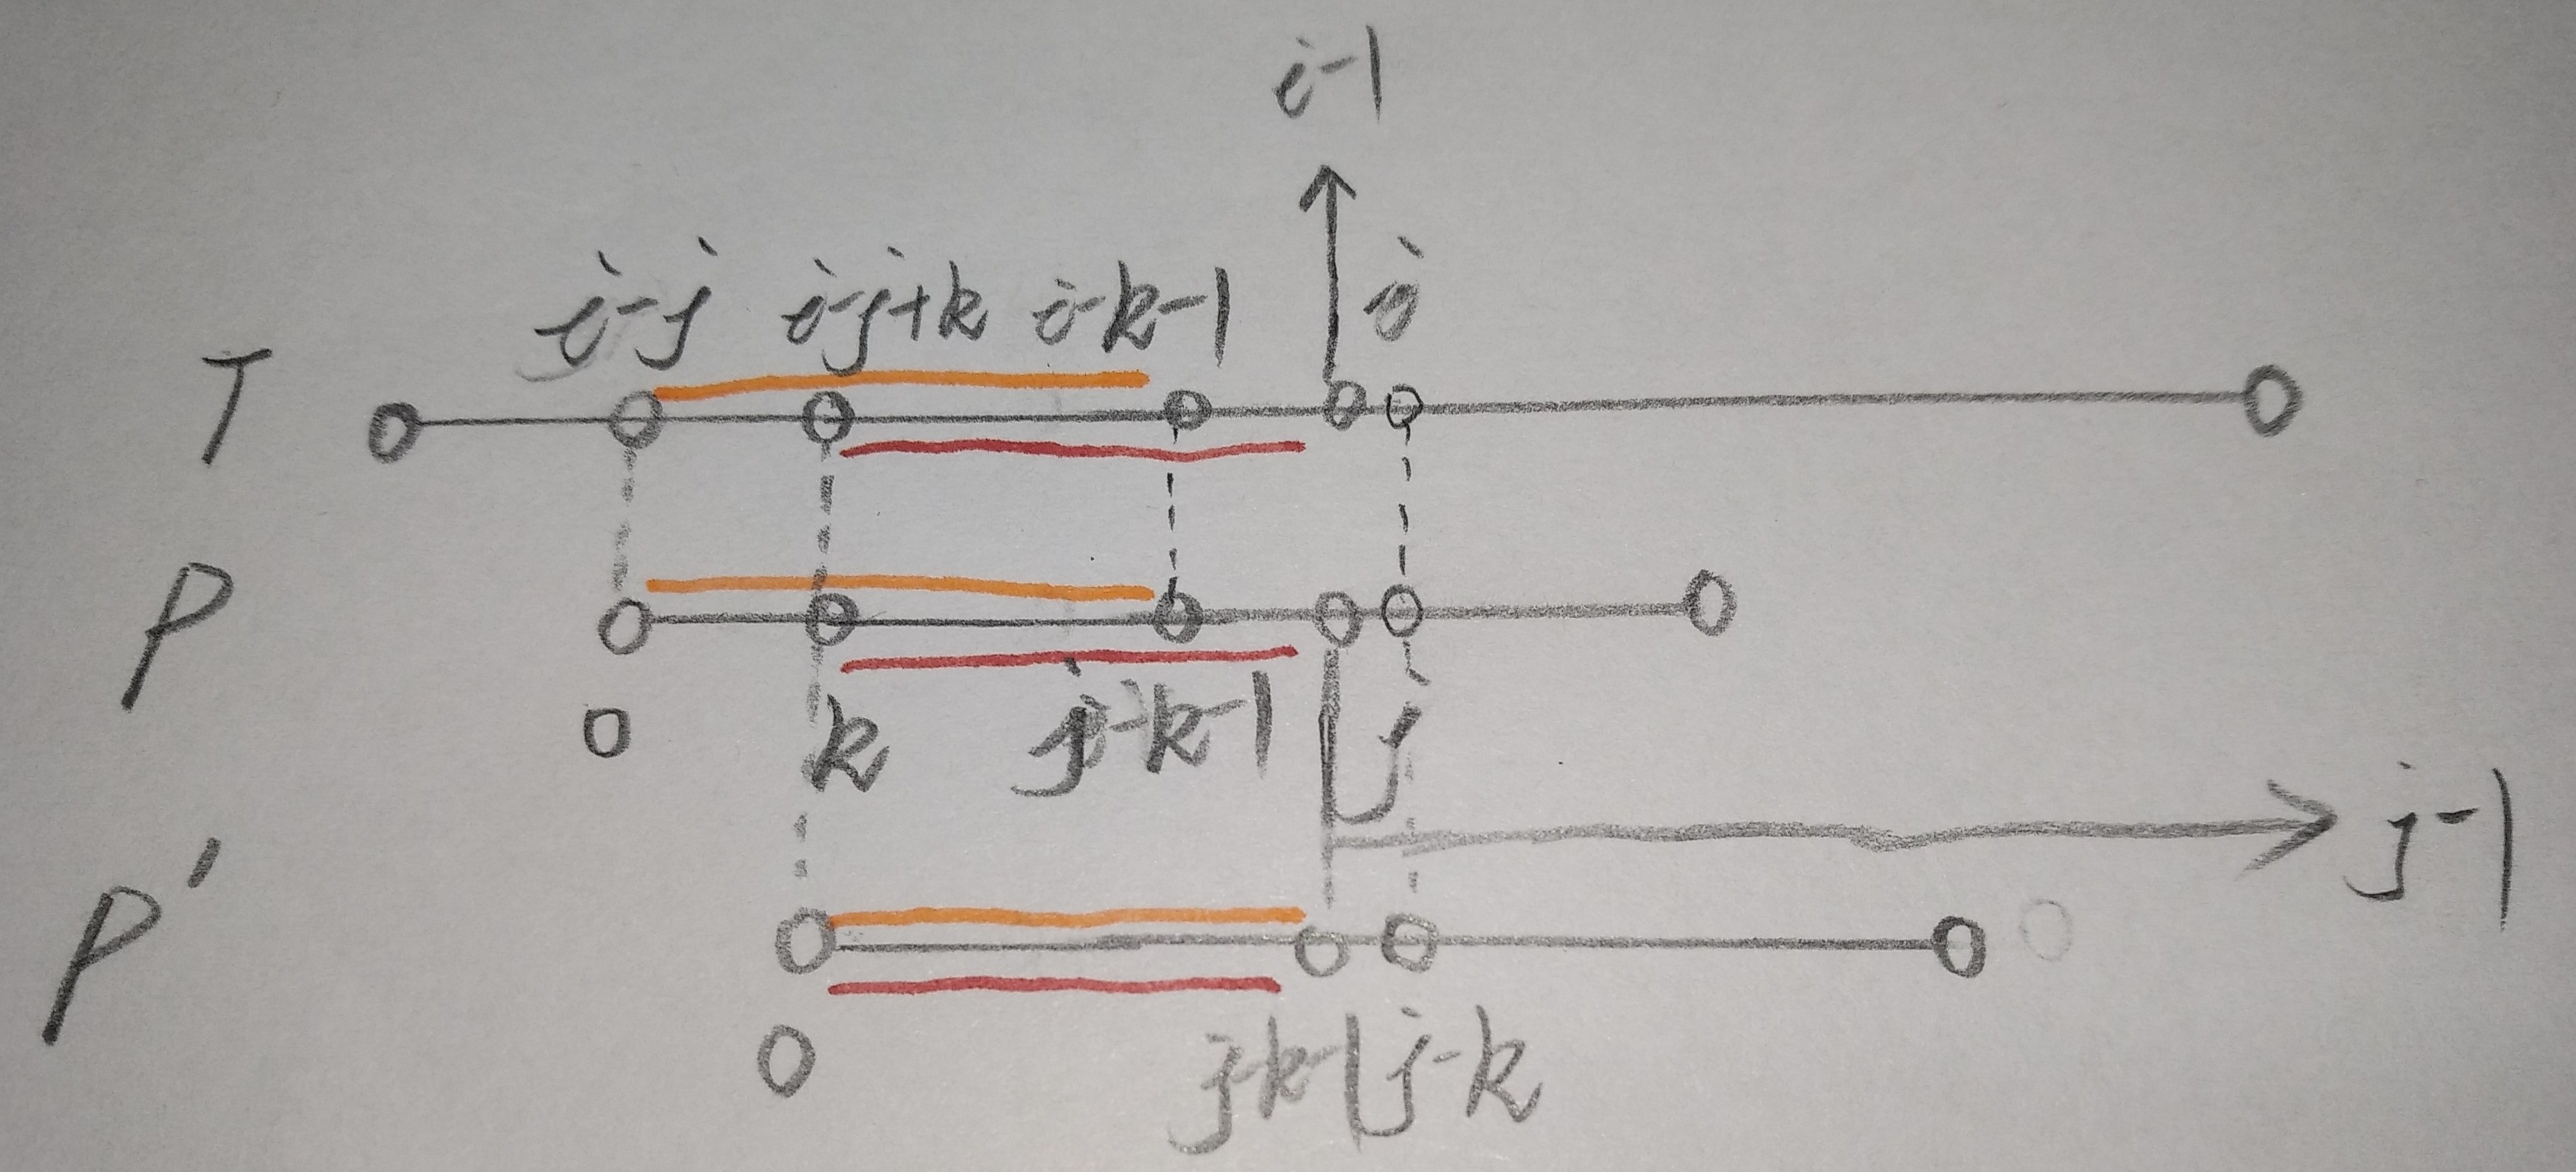 i-1
i-j i-j+k i-k-1 i
T
P
0 k j-k-1 j
j-1
P'
0 j-k-1 j-k